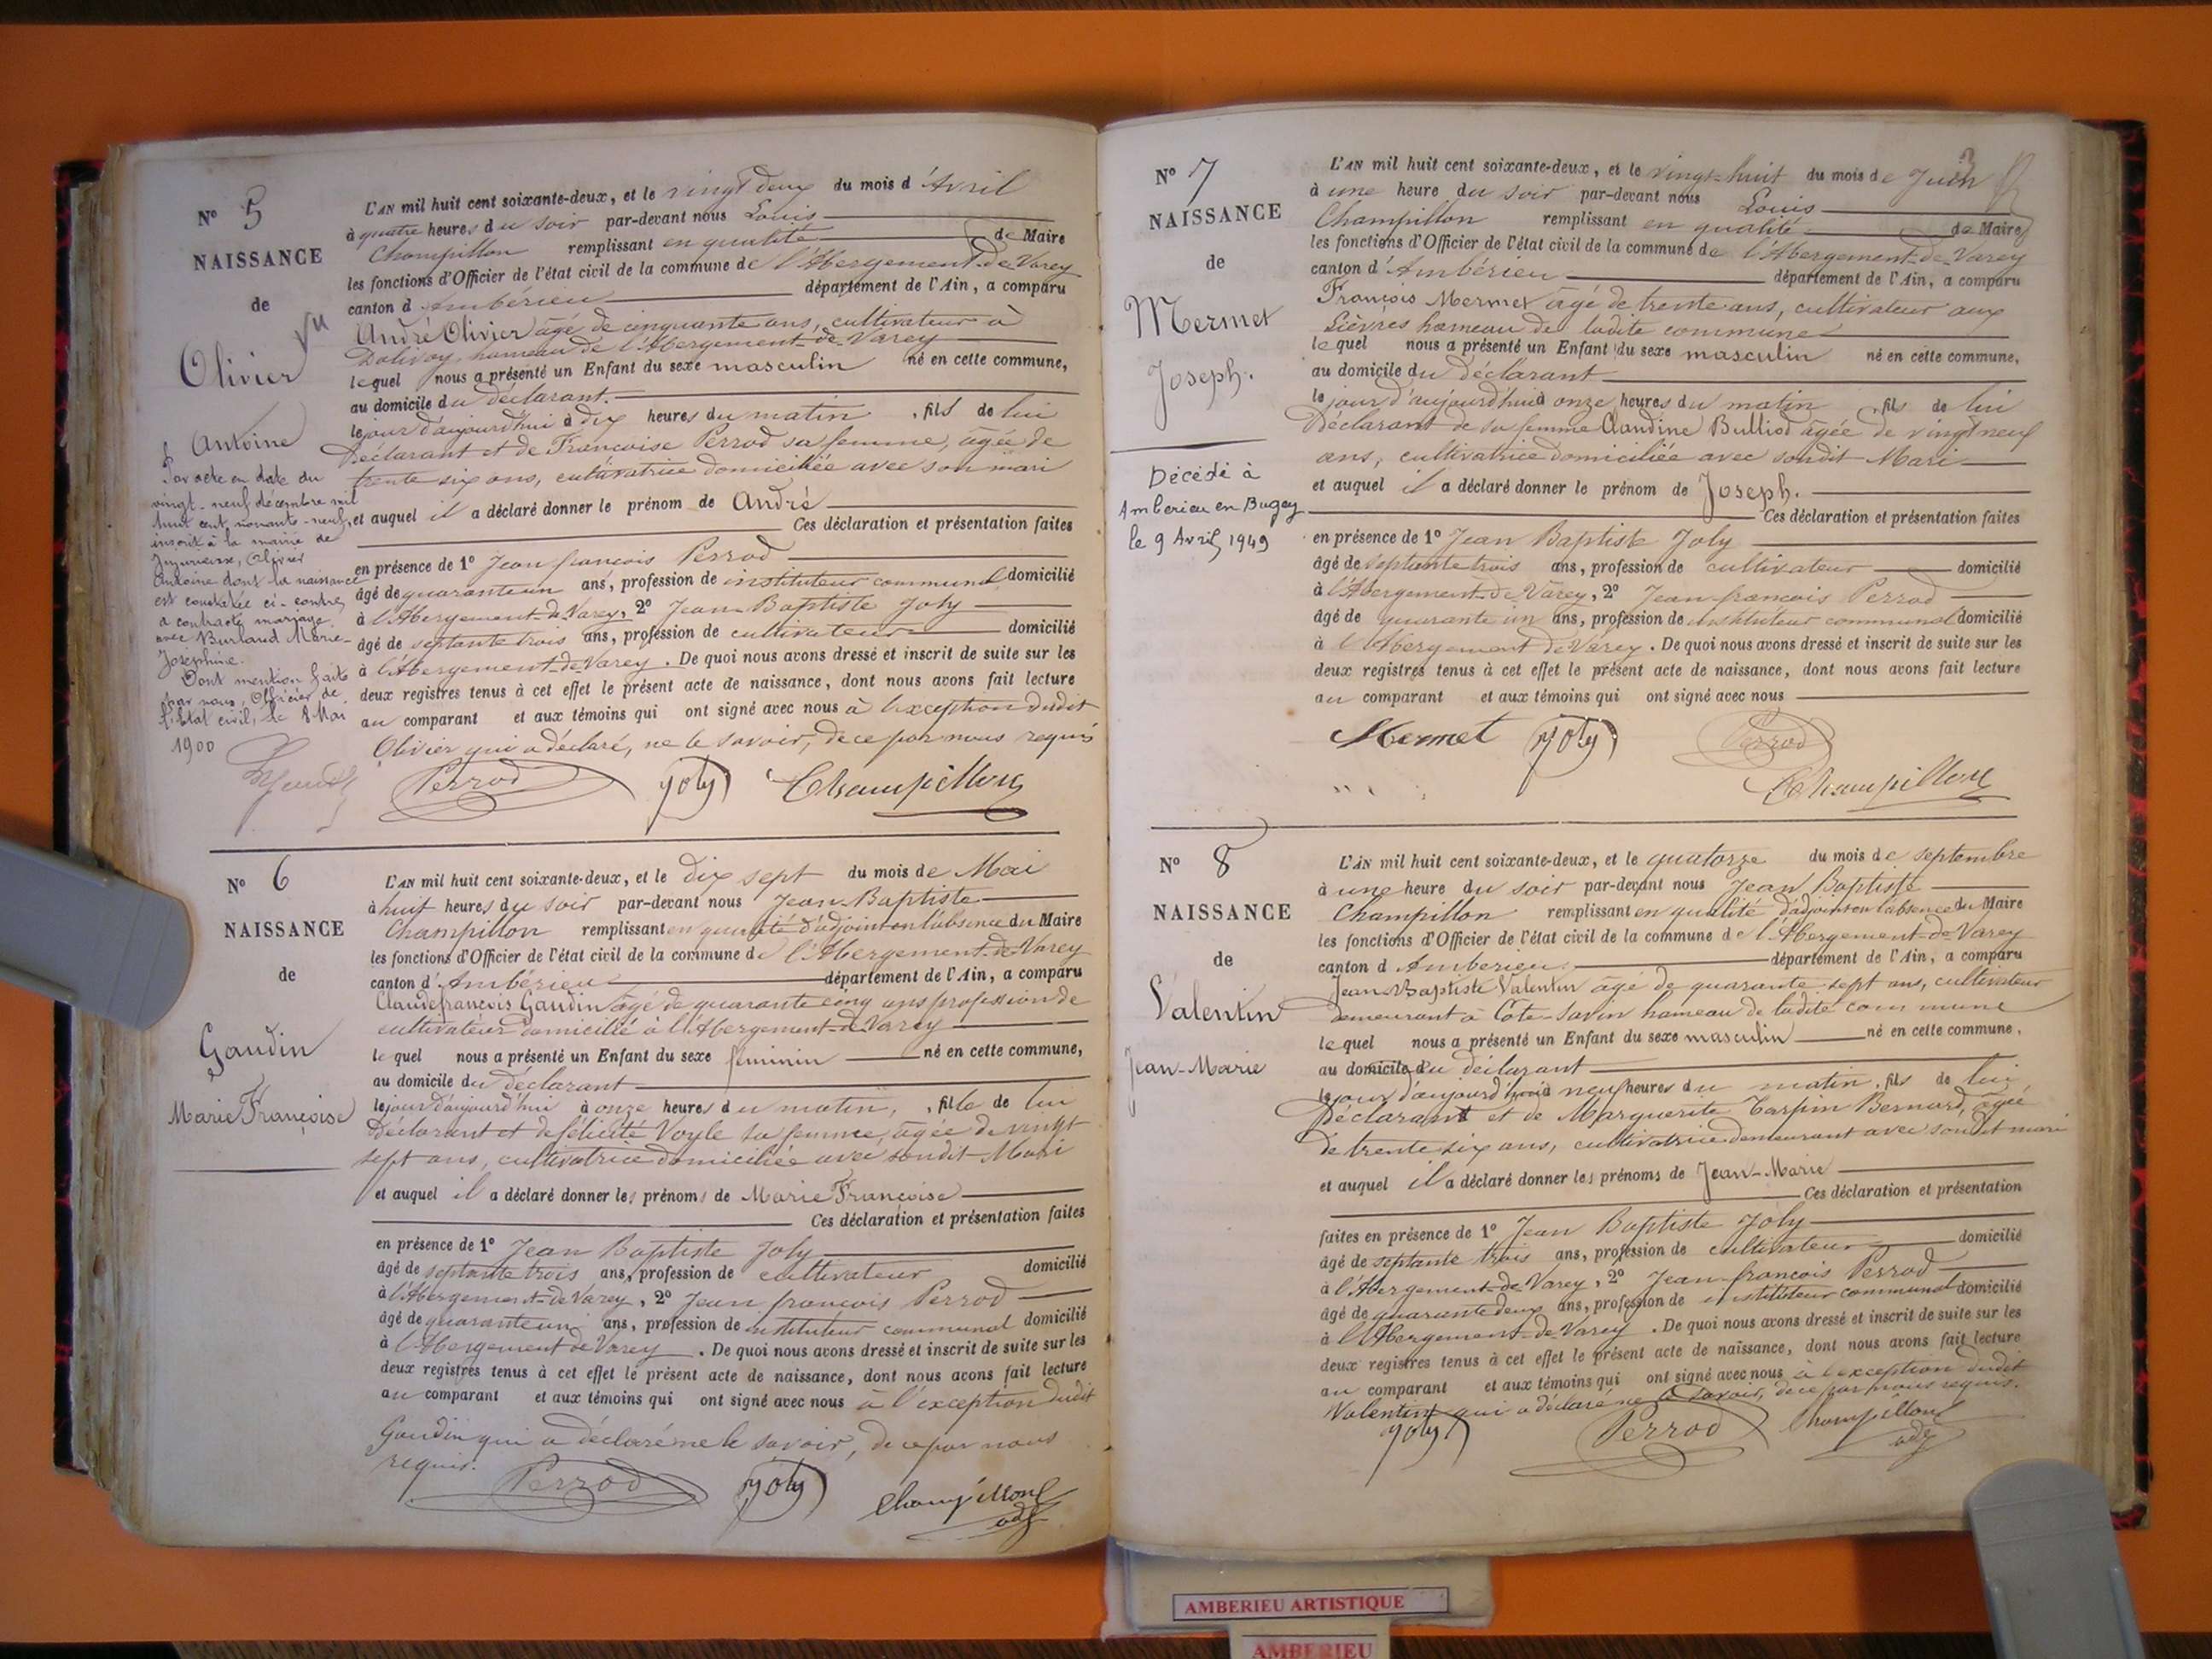 N° 5
NAISSANCE
de
Vu
Olivier
Antoine
Par acte en date du
vingt-neuf décembre mil
huit cent nonante-neuf,
inscrit à la mairie de
Jujurieux, Olivier
Antoine dont la naissance
est constatée ci-contre,
a contracté mariage
avec Burlaud Marie-
Joséphine.
Dont mention faite
par nous, Officier de
l'Etat civil, le 8 Mai
1900
L'AN mil huit cent soixante-deux, et le vingt deux du mois d'Avril
à quatre heures du soir par-devant nous Louis
Champillon remplissant en qualité de Maire
les fonctions d'Officier de l'état civil de la commune de l'Abergement-de-Varey
canton d'Ambérieu département de l'Ain, a comparu
André Olivier âgé de cinquante ans, cultivateur à
Dalivoy, hameau de l'Abergement-de-Varey
lequel nous a présenté un Enfant du sexe masculin né en cette commune,
au domicile du déclarant.
le jour d'aujourd'hui à dix heures du matin, fils de lui
Déclarant et de Françoise Perrod sa femme, âgée de
trente six ans, cultivatrice domiciliée avec son mari
et auquel il a déclaré donner le prénom de André
Ces déclaration et présentation faites
en présence de 1° Jean françois Perrod
âgé de quarante un ans, profession de instituteur communal domicilié
à l'Abergement-de-Varey, 2° Jean Baptiste Joly
âgé de septante trois ans, profession de cultivateur domicilié
à l'Abergement-de-Varey. De quoi nous avons dressé et inscrit de suite sur les
deux registres tenus à cet effet le présent acte de naissance, dont nous avons fait lecture
au comparant et aux témoins qui ont signé avec nous à l'exception dudit
Olivier qui a déclaré, ne le savoir, de ce par nous requis
Perrod Joly Champillon
N° 6
NAISSANCE
de
Gaudin
Marie Françoise
L'AN mil huit cent soixante-deux, et le dix sept du mois de Mai
à huit heures du soir par-devant nous Jean-Baptiste
Champillon remplissant en qualité d'adjoint en l'absence du Maire
les fonctions d'Officier de l'état civil de la commune de l'Abergement-de-Varey
canton d'Ambérieu département de l'Ain, a comparu
Claude françois Gaudin âgé de quarante cinq ans profession de
cultivateur domicilié à l'Abergement-de-Varey
lequel nous a présenté un Enfant du sexe féminin né en cette commune,
au domicile du déclarant
le jour d'aujourd'hui à onze heures du matin, fille de lui
Déclarant et de félicité Voyle sa femme, âgée de vingt
sept ans, cultivatrice domiciliée avec sondit Mari
et auquel il a déclaré donner les prénoms de Marie Françoise
Ces déclaration et présentation faites
en présence de 1° Jean Baptiste Joly
âgé de septante trois ans, profession de cultivateur domicilié
à l'Abergement-de-Varey, 2° Jean françois Perrod
âgé de quarante un ans, profession de instituteur communal domicilié
à l'Abergement de Varey. De quoi nous avons dressé et inscrit de suite sur les
deux registres tenus à cet effet le présent acte de naissance, dont nous avons fait lecture
au comparant et aux témoins qui ont signé avec nous à l'exception dudit
Gaudin qui a déclaré ne le savoir, de ce par nous
requis.
Perrod Joly Champillon
adj
N° 7
NAISSANCE
de
Mermet
Joseph.
Décédé à
Amberieu en Bugey
le 9 Avril 1949
3
L'AN mil huit cent soixante-deux, et le vingt-huit du mois de Juin
à une heure du soir par-devant nous Louis
Champillon remplissant en qualité de Maire
les fonctions d'Officier de l'état civil de la commune de l'Abergement-de-Varey
canton d'Ambérieu département de l'Ain, a comparu
François Mermet âgé de trente ans, cultivateur aux
Lièvres hameau de ladite commune
lequel nous a présenté un Enfant du sexe masculin né en cette commune,
au domicile du déclarant
le jour d'aujourd'hui à onze heures du matin, fils de lui
Déclarant de sa femme Claudine Bulliod âgée de vingt neuf
ans, cultivatrice domiciliée avec sondit Mari
et auquel il a déclaré donner le prénom de Joseph.
Ces déclaration et présentation faites
en présence de 1° Jean Baptiste Joly
âgé de septante trois ans, profession de cultivateur domicilié
à l'Abergement-de-Varey, 2° Jean françois Perrod
âgé de quarante un ans, profession de instituteur communal domicilié
à l'Abergement de Varey. De quoi nous avons dressé et inscrit de suite sur les
deux registres tenus à cet effet le présent acte de naissance, dont nous avons fait lecture
au comparant et aux témoins qui ont signé avec nous
Mermet Joly Perrod
Champillon
N° 8
NAISSANCE
de
Valentin
Jean-Marie
L'AN mil huit cent soixante-deux, et le quatorze du mois de septembre
à une heure du soir par-devant nous Jean Baptiste
Champillon remplissant en qualité d'adjoint en l'absence du Maire
les fonctions d'Officier de l'état civil de la commune de l'Abergement-de-Varey
canton d'Amberieu département de l'Ain, a comparu
Jean-Baptiste Valentin âgé de quarante-sept ans, cultivateur
demeurant à Côte-Savin hameau de ladite commune
lequel nous a présenté un Enfant du sexe masculin né en cette commune,
au domicile du déclarant
le jour d'aujourd'hui à neuf heures du matin, fils de lui,
Déclarant et de Marguerite Tarpin Bernard, âgée
de trente six ans, cultivatrice demeurant avec sondit mari
et auquel il a déclaré donner les prénoms de Jean-Marie
Ces déclaration et présentation
faites en présence de 1° Jean Baptiste Joly
âgé de septante trois ans, profession de cultivateur domicilié
à l'Abergement-de-Varey, 2° Jean françois Perrod
âgé de quarante deux ans, profession de instituteur communal domicilié
à l'Abergement-de-Varey. De quoi nous avons dressé et inscrit de suite sur les
deux registres tenus à cet effet le présent acte de naissance, dont nous avons fait lecture
au comparant et aux témoins qui ont signé avec nous à l'exception dudit
Valentin qui a déclaré ne le savoir, de ce par nous requis.
Joly Perrod Champillon
adj
AMBERIEU ARTISTIQUE
AMBERIEU